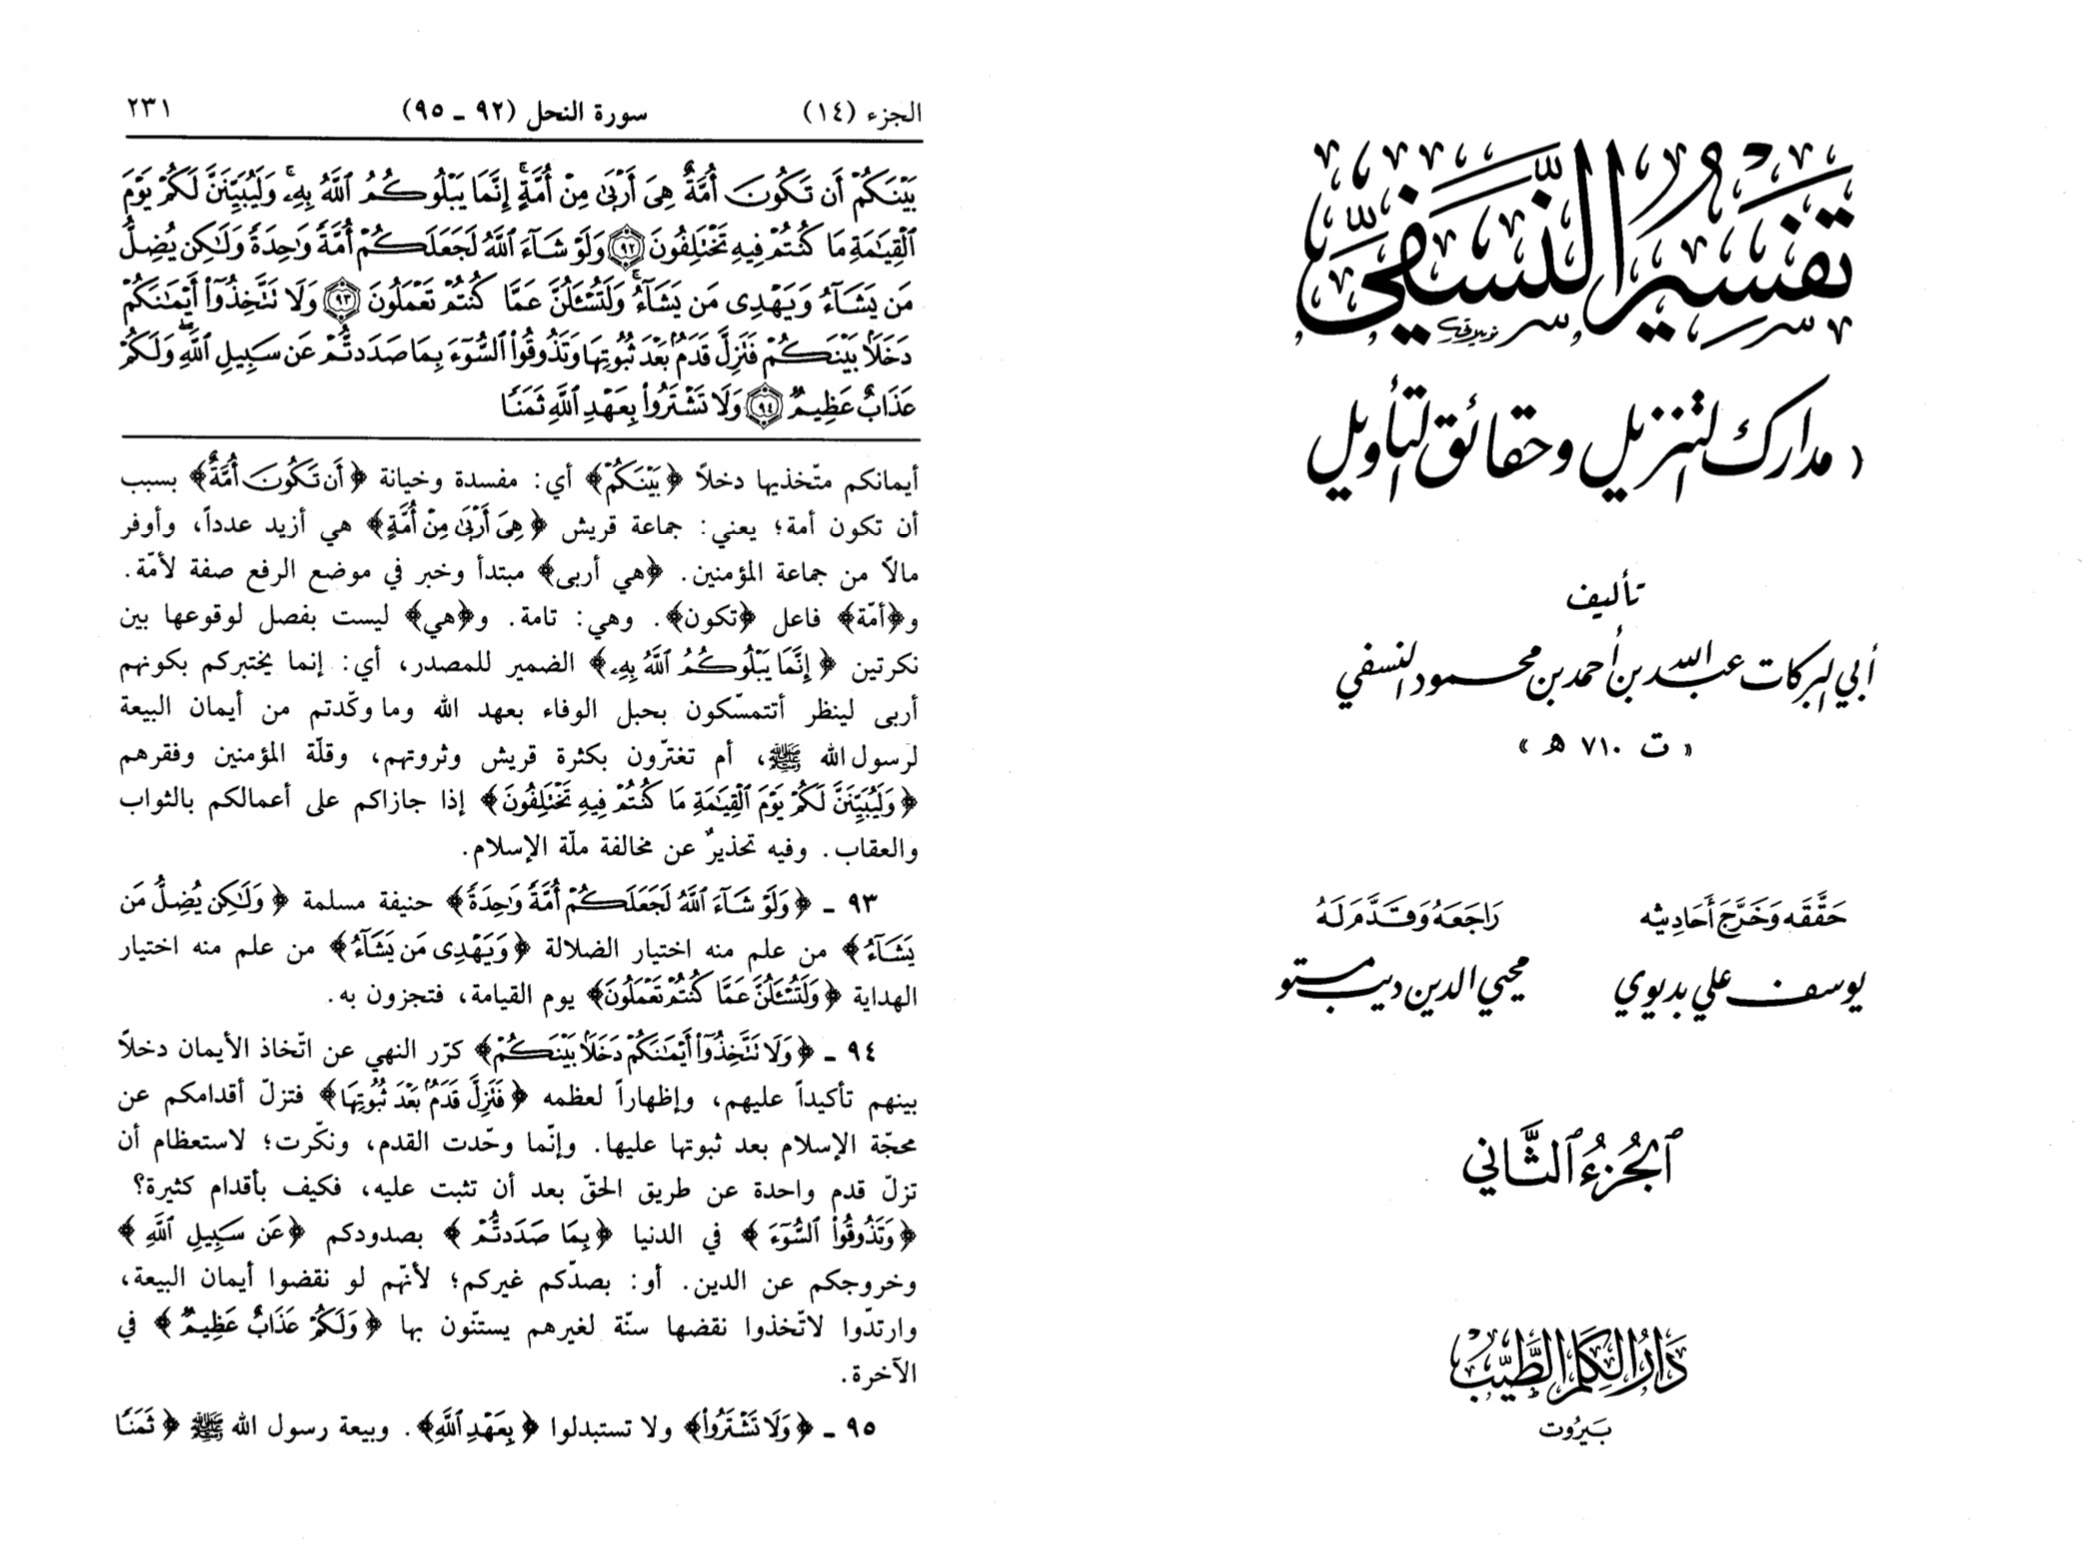 تفسير النسفي
(مدارك التنزيل وحقائق التأويل
تأليف
أبي البركات عبد الله بن أحمد بن محمود النسفي
« ت ٧١٠ هـ »
حَقَّقَه وَخَرَّجَ أَحَادِيثه
يوسف علي بديوي
رَاجَعَهُ وَقَدَّمَ لَهُ
محيي الدين ديب مستو
الجُزءُ الثَّاني
دَارُ الكَلِمِ الطَّيِّبِ
بَيرُوت
الجزء (١٤) سورة النحل (٩٢ ـ ٩٥) ٢٣١
بَيْنَكُمْ أَن تَكُونَ أُمَّةٌ هِيَ أَرْبَىٰ مِنْ أُمَّةٍ ۚ إِنَّمَا يَبْلُوكُمُ ٱللَّهُ بِهِۦ ۚ وَلَيُبَيِّنَنَّ لَكُمْ يَوْمَ
ٱلْقِيَٰمَةِ مَا كُنتُمْ فِيهِ تَخْتَلِفُونَ ﴿٩٢﴾ وَلَوْ شَآءَ ٱللَّهُ لَجَعَلَكُمْ أُمَّةً وَٰحِدَةً وَلَٰكِن يُضِلُّ
مَن يَشَآءُ وَيَهْدِى مَن يَشَآءُ ۚ وَلَتُسْـَٔلُنَّ عَمَّا كُنتُمْ تَعْمَلُونَ ﴿٩٣﴾ وَلَا تَتَّخِذُوٓا۟ أَيْمَٰنَكُمْ
دَخَلًۢا بَيْنَكُمْ فَتَزِلَّ قَدَمٌۢ بَعْدَ ثُبُوتِهَا وَتَذُوقُوا۟ ٱلسُّوٓءَ بِمَا صَدَدتُّمْ عَن سَبِيلِ ٱللَّهِ ۖ وَلَكُمْ
عَذَابٌ عَظِيمٌ ﴿٩٤﴾ وَلَا تَشْتَرُوا۟ بِعَهْدِ ٱللَّهِ ثَمَنًا
أيمانكم متّخذيها دخلاً ﴿بَيْنَكُمْ﴾ أي: مفسدة وخيانة ﴿أَن تَكُونَ أُمَّةٌ﴾ بسبب
أن تكون أمة؛ يعني: جماعة قريش ﴿هِيَ أَرْبَىٰ مِنْ أُمَّةٍ﴾ هي أزيد عدداً، وأوفر
مالاً من جماعة المؤمنين. ﴿هي أربى﴾ مبتدأ وخبر في موضع الرفع صفة لأمّة.
و﴿أمّة﴾ فاعل ﴿تكون﴾. وهي: تامة. و﴿هي﴾ ليست بفصل لوقوعها بين
نكرتين ﴿إِنَّمَا يَبْلُوكُمُ ٱللَّهُ بِهِۦ﴾ الضمير للمصدر، أي: إنما يختبركم بكونهم
أربى لينظر أتتمسّكون بحبل الوفاء بعهد الله وما وكّدتم من أيمان البيعة
لرسول الله ﷺ، أم تغترّون بكثرة قريش وثروتهم، وقلّة المؤمنين وفقرهم
﴿وَلَيُبَيِّنَنَّ لَكُمْ يَوْمَ ٱلْقِيَٰمَةِ مَا كُنتُمْ فِيهِ تَخْتَلِفُونَ﴾ إذا جازاكم على أعمالكم بالثواب
والعقاب. وفيه تحذيرٌ عن مخالفة ملّة الإسلام.
٩٣ ـ ﴿وَلَوْ شَآءَ ٱللَّهُ لَجَعَلَكُمْ أُمَّةً وَٰحِدَةً﴾ حنيفة مسلمة ﴿وَلَٰكِن يُضِلُّ مَن
يَشَآءُ﴾ من علم منه اختيار الضلالة ﴿وَيَهْدِى مَن يَشَآءُ﴾ من علم منه اختيار
الهداية ﴿وَلَتُسْـَٔلُنَّ عَمَّا كُنتُمْ تَعْمَلُونَ﴾ يوم القيامة، فتجزون به.
٩٤ ـ ﴿وَلَا تَتَّخِذُوٓا۟ أَيْمَٰنَكُمْ دَخَلًۢا بَيْنَكُمْ﴾ كرّر النهي عن اتّخاذ الأيمان دخلاً
بينهم تأكيداً عليهم، وإظهاراً لعظمه ﴿فَتَزِلَّ قَدَمٌۢ بَعْدَ ثُبُوتِهَا﴾ فتزلّ أقدامكم عن
محجّة الإسلام بعد ثبوتها عليها. وإنّما وحّدت القدم، ونكّرت؛ لاستعظام أن
تزلّ قدم واحدة عن طريق الحقّ بعد أن تثبت عليه، فكيف بأقدام كثيرة؟
﴿وَتَذُوقُوا۟ ٱلسُّوٓءَ﴾ في الدنيا ﴿بِمَا صَدَدتُّمْ﴾ بصدودكم ﴿عَن سَبِيلِ ٱللَّهِ﴾
وخروجكم عن الدين. أو: بصدّكم غيركم؛ لأنّهم لو نقضوا أيمان البيعة،
وارتدّوا لاتّخذوا نقضها سنّة لغيرهم يستنّون بها ﴿وَلَكُمْ عَذَابٌ عَظِيمٌ﴾ في
الآخرة.
٩٥ ـ ﴿وَلَا تَشْتَرُوا۟﴾ ولا تستبدلوا ﴿بِعَهْدِ ٱللَّهِ﴾. وبيعة رسول الله ﷺ ﴿ثَمَنًا